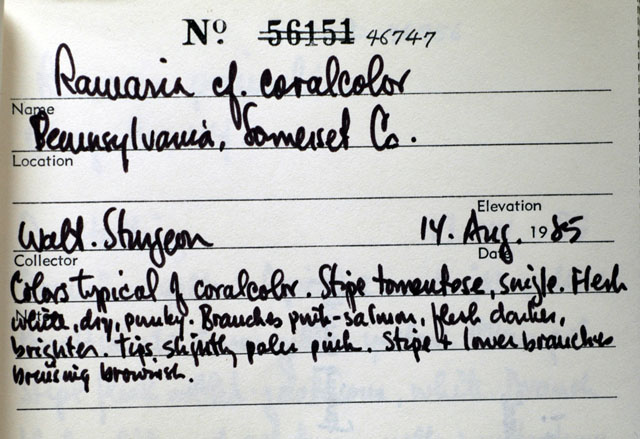 Nº 56151 46747
Ramaria cf. coralcolor
Name
Pennsylvania, Somerset Co.
Location
Elevation
Walt. Sturgeon 14. Aug. 1985
Collector Date
Colors typical of coralcolor. Stipe tomentose, single. Flesh
white, dry, punky. Branches pink-salmon, flesh darker,
brighter. Tips slightly paler pink. Stipe + lower branches
bruising brownish.